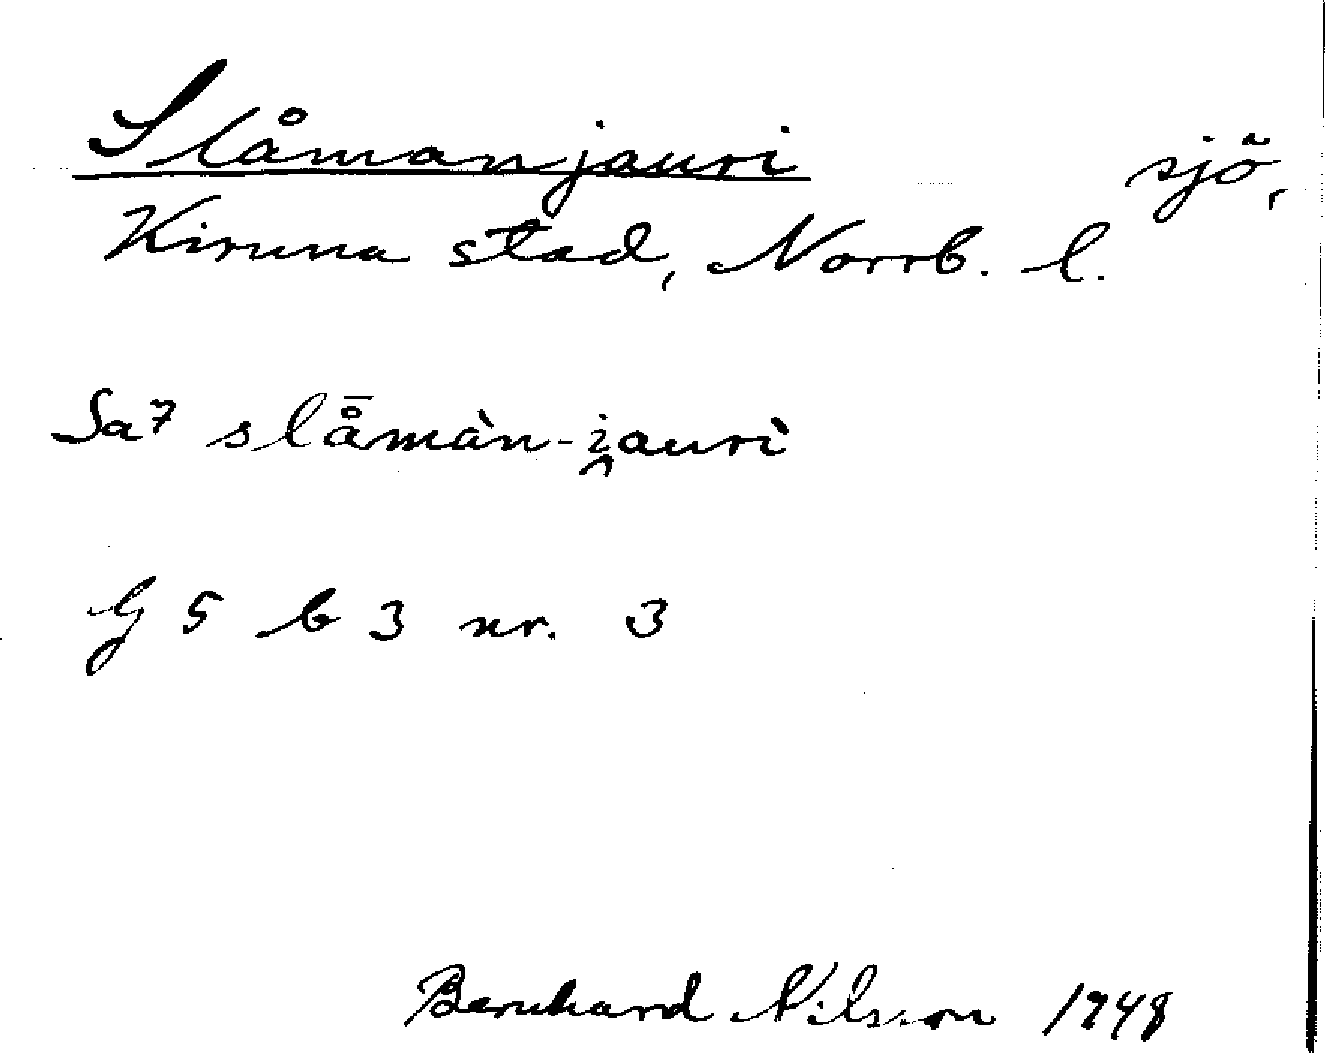 Slåmanjauri sjö,
Kiruna stad, Norrb. l.
Sa⁷ slå̄màn-i̯aurì
G 5 b 3 nr. 3
Bernhard Nilsson 1948